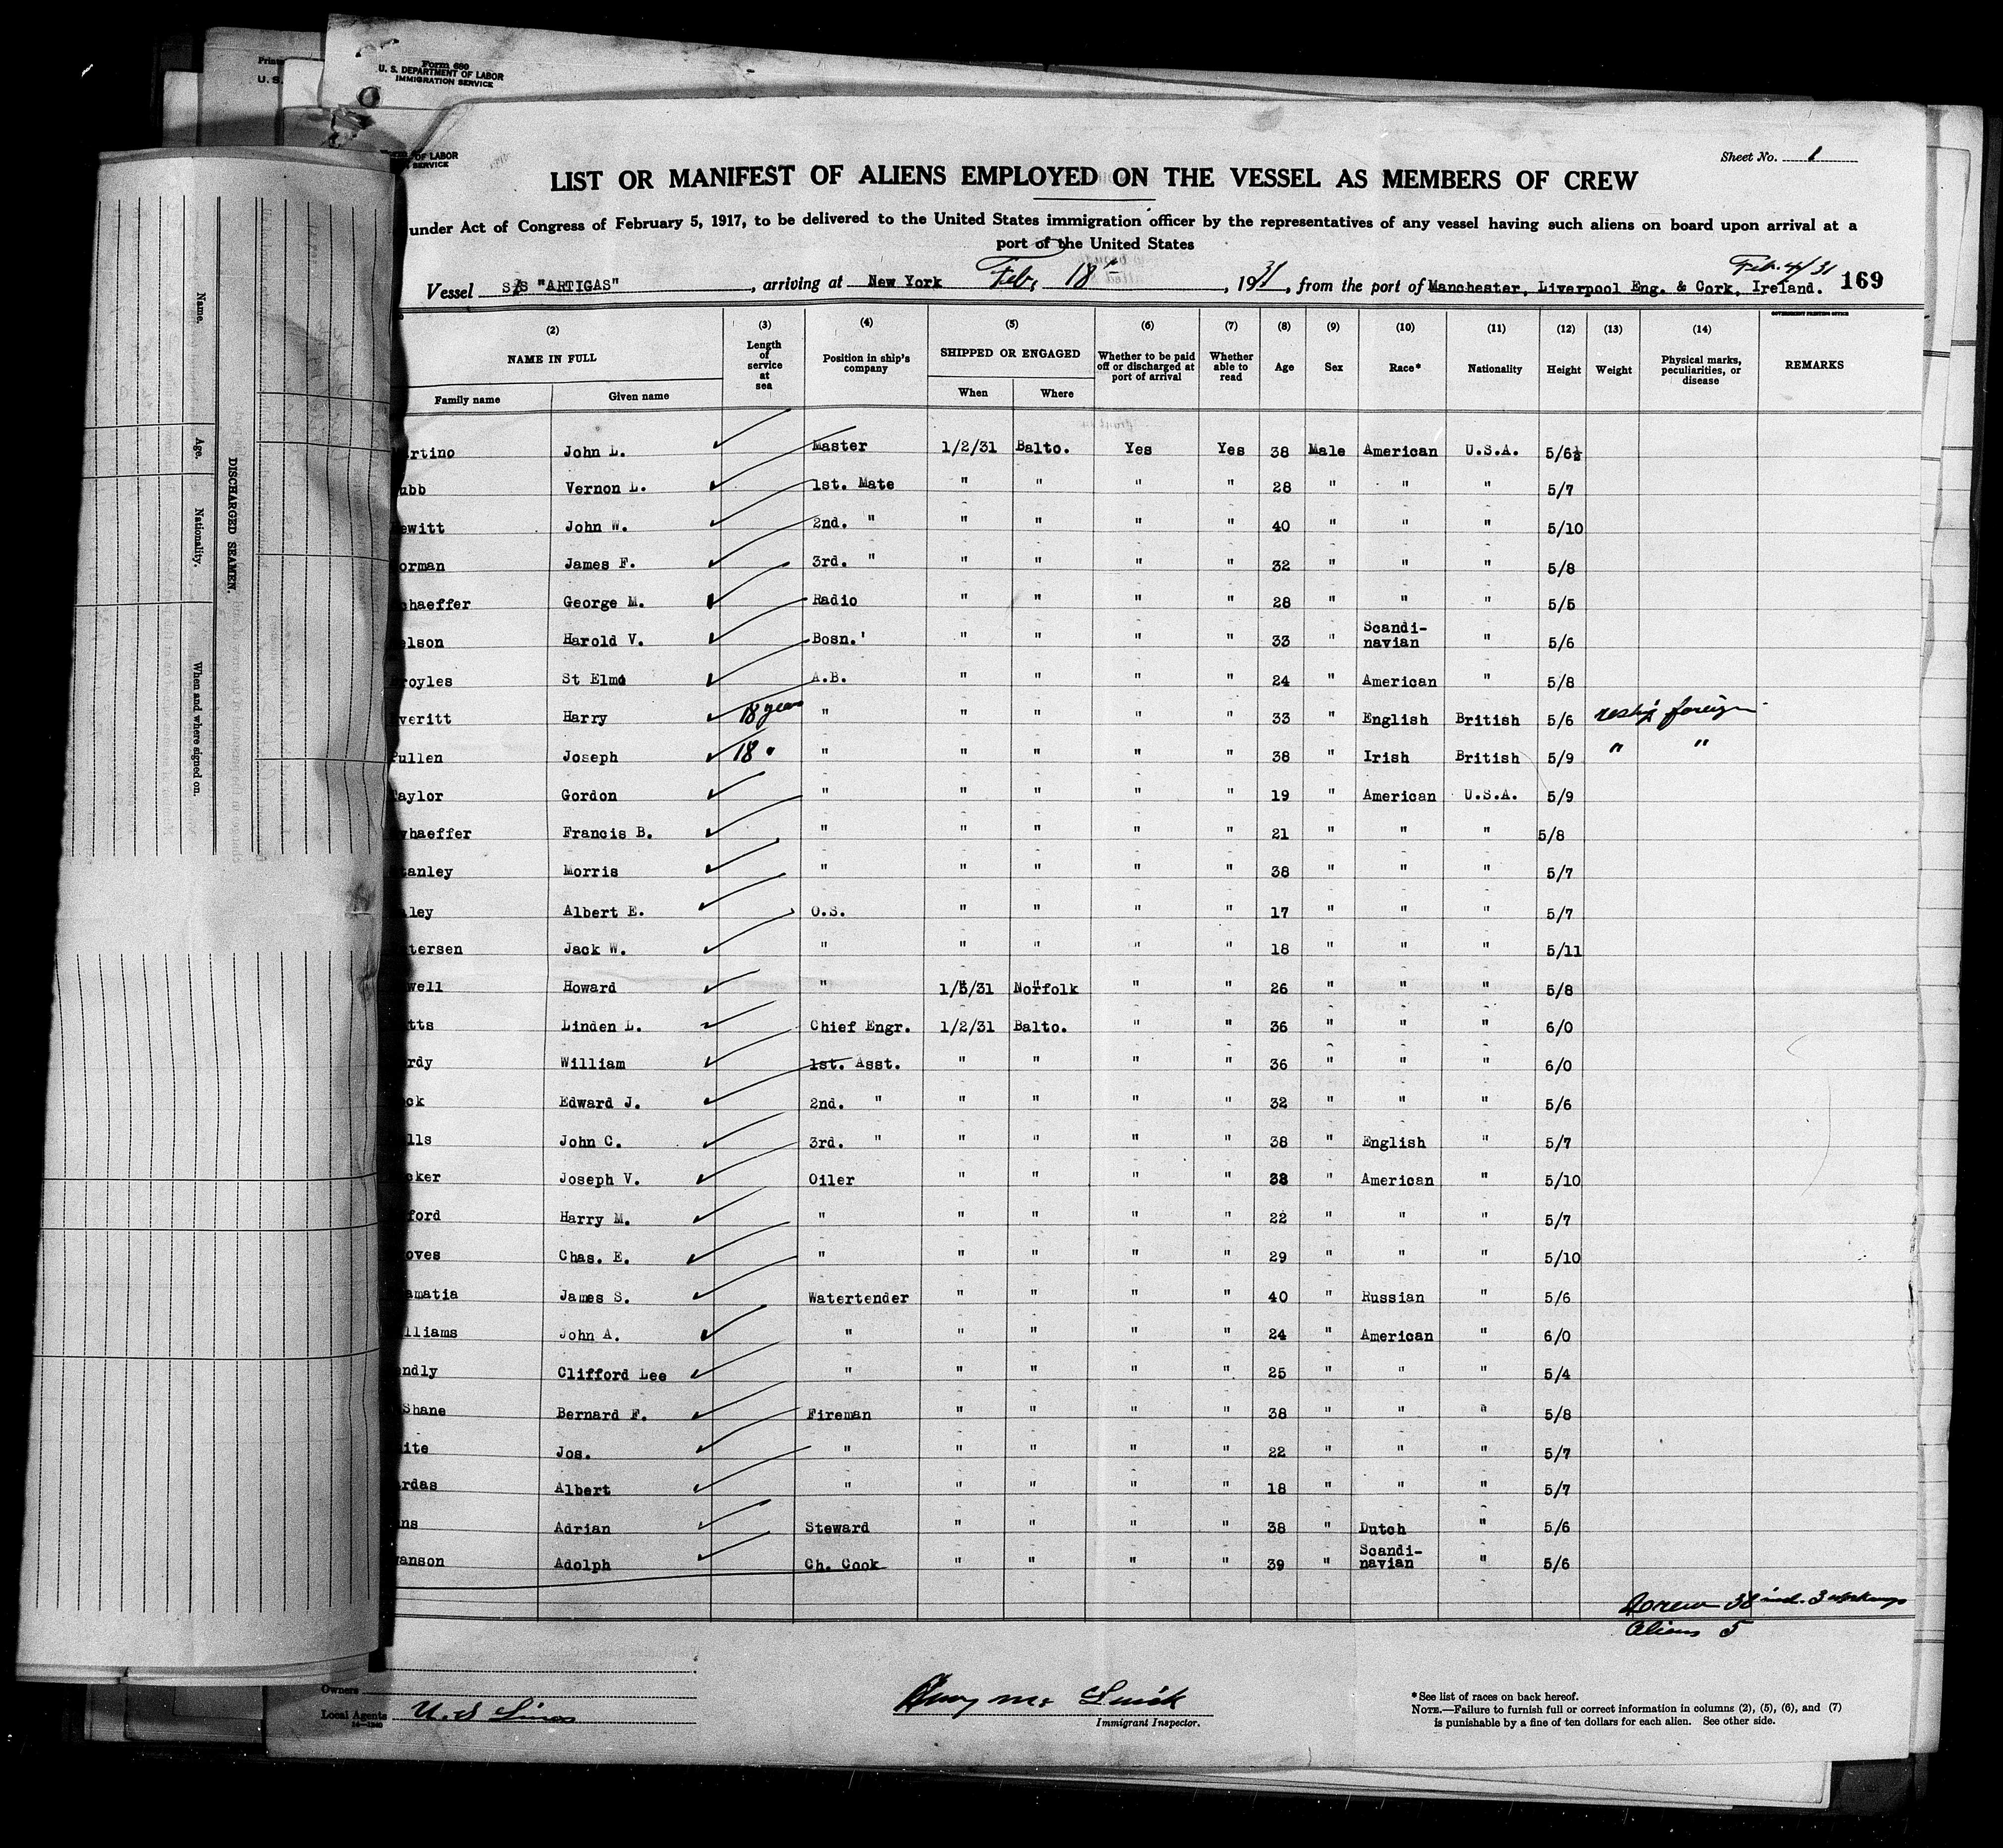 Form 680
U. S. DEPARTMENT OF LABOR
IMMIGRATION SERVICE
U. S.
OF LABOR
SERVICE
Sheet No. 1
LIST OR MANIFEST OF ALIENS EMPLOYED ON THE VESSEL AS MEMBERS OF CREW
under Act of Congress of February 5, 1917, to be delivered to the United States immigration officer by the representatives of any vessel having such aliens on board upon arrival at a
port of the United States
Feb. 4/31
Vessel S/S "ARTIGAS", arriving at New York Feb. 18th, 1931, from the port of Manchester, Liverpool Eng. & Cork, Ireland. 169
GOVERNMENT PRINTING OFFICE
(2) (3) (4) (5) (6) (7) (8) (9) (10) (11) (12) (13) (14)
NAME IN FULL Length of service at sea Position in ship's company SHIPPED OR ENGAGED Whether to be paid off or discharged at port of arrival Whether able to read Age Sex Race* Nationality Height Weight Physical marks, peculiarities, or disease REMARKS
Family name Given name When Where
rtino John L. Master 1/2/31 Balto. Yes Yes 38 Male American U.S.A. 5/6½
ubb Vernon L. 1st. Mate " " " " 28 " " " 5/7
ewitt John W. 2nd. " " " " " 40 " " " 5/10
orman James F. 3rd. " " " " " 32 " " " 5/8
chaeffer George M. Radio " " " " 28 " " " 5/5
elson Harold V. Bosn.' " " " " 33 " Scandi-navian " 5/6
royles St Elmo A.B. " " " " 24 " American " 5/8
veritt Harry 18 years " " " " " 33 " English British 5/6 foreign
Pullen Joseph 18 " " " " " " 38 " Irish British 5/9 " "
Taylor Gordon " " " " " 19 " American U.S.A. 5/9
haeffer Francis B. " " " " " 21 " " " 5/8
tanley Morris " " " " " 38 " " " 5/7
aley Albert E. O.S. " " " " 17 " " " 5/7
tersen Jack W. " " " " " 18 " " " 5/11
well Howard " 1/5/31 Norfolk " " 26 " " " 5/8
tts Linden L. Chief Engr. 1/2/31 Balto. " " 36 " " " 6/0
rdy William 1st. Asst. " " " " 36 " " " 6/0
ck Edward J. 2nd. " " " " " 32 " " " 5/6
lls John C. 3rd. " " " " " 38 " English " 5/7
cker Joseph V. Oiler " " " " 38 " American " 5/10
ford Harry M. " " " " " 22 " " " 5/7
oves Chas. E. " " " " " 29 " " " 5/10
amatia James S. Watertender " " " " 40 " Russian " 5/6
lliams John A. " " " " " 24 " American " 6/0
ndly Clifford Lee " " " " " 25 " " " 5/4
Shane Bernard F. Fireman " " " " 38 " " " 5/8
ite Jos. " " " " " 22 " " " 5/7
rdas Albert " " " " " 18 " " " 5/7
ns Adrian Steward " " " " 38 " Dutch " 5/6
anson Adolph Ch. Cook " " " " 39 " Scandi-navian " 5/6
Crew 38 incl. 3
Aliens 5
Owners
Local Agents U. S Lines
14—1240
Immigrant Inspector.
*See list of races on back hereof.
NOTE.—Failure to furnish full or correct information in columns (2), (5), (6), and (7)
is punishable by a fine of ten dollars for each alien. See other side.
DISCHARGED SEAMEN.
Name. Age. Nationality. When and where signed on.